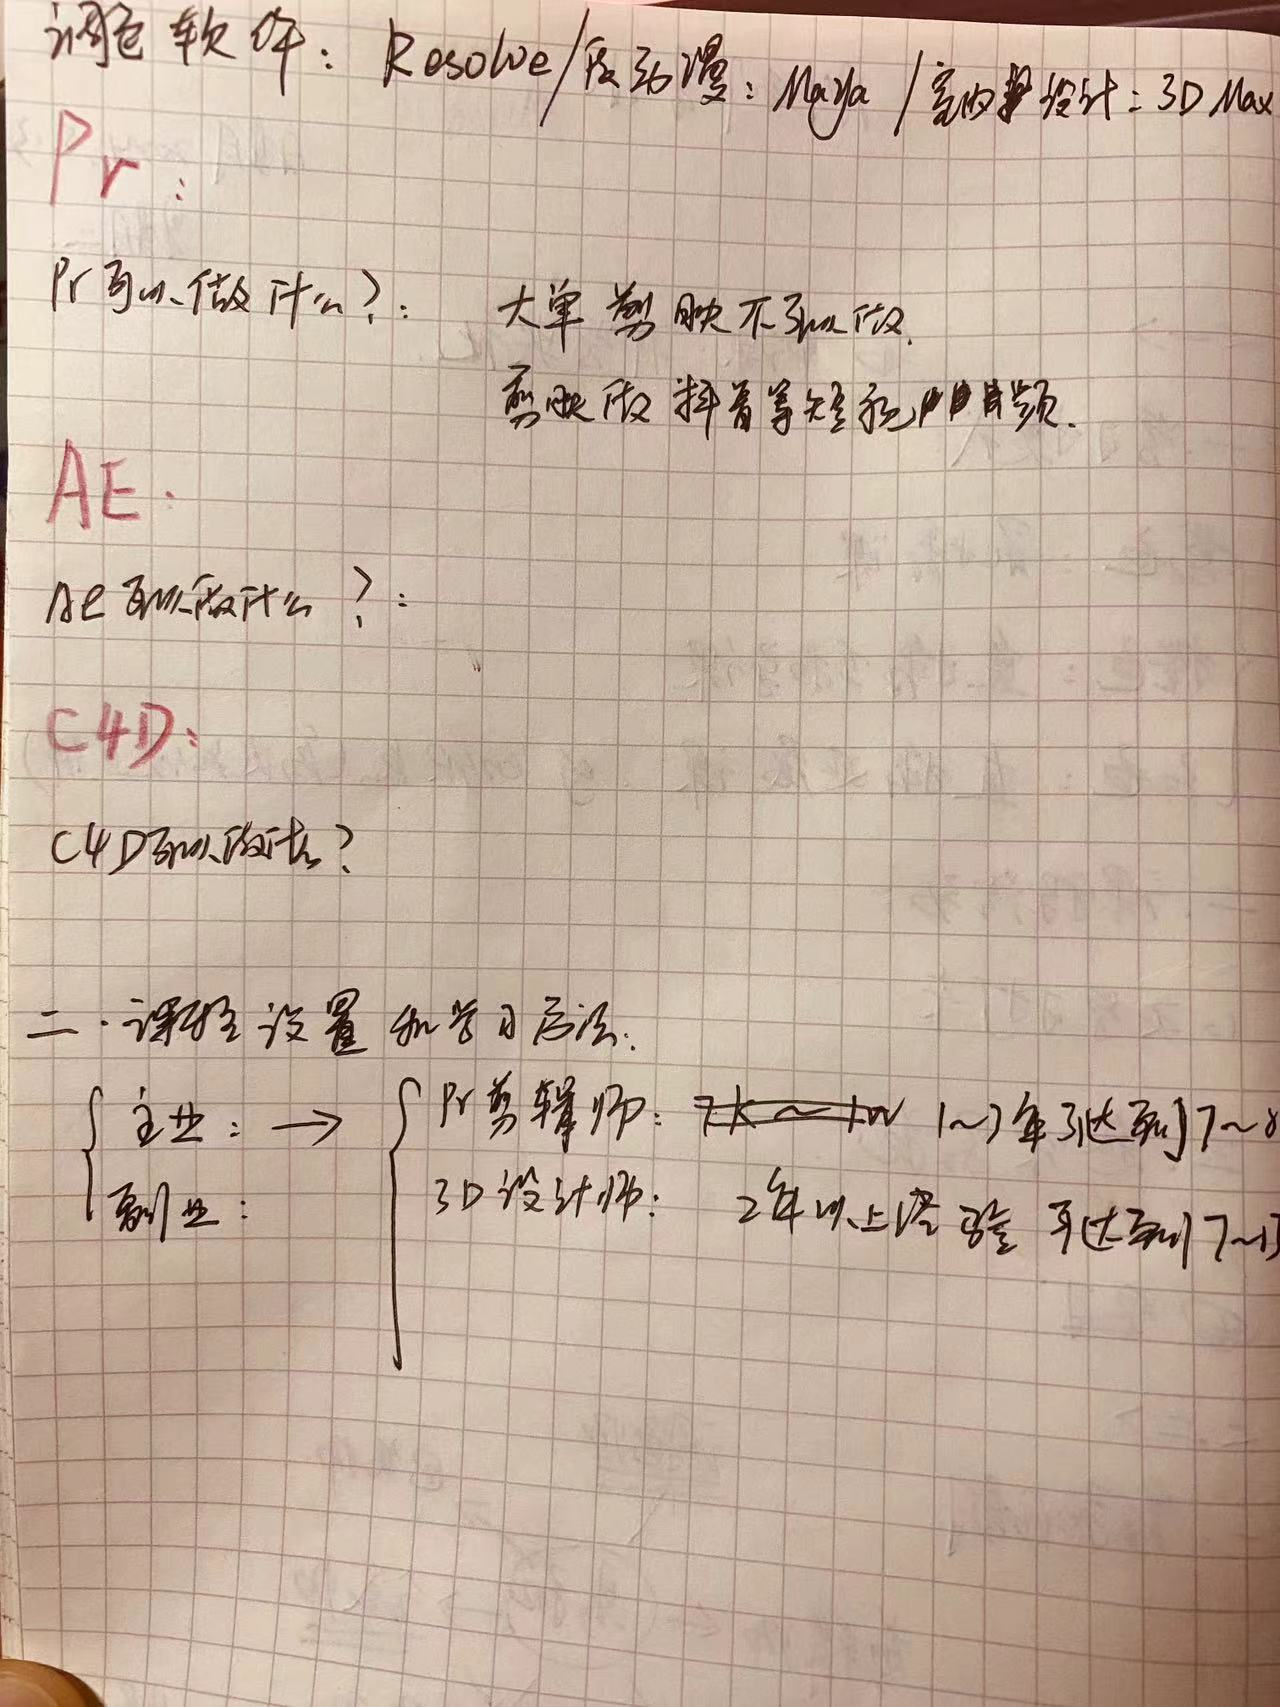 调色软件: Resolve/做动漫: Maya /室内设计: 3D Max
Pr:
Pr可以做什么?: 大单剪映不可以做.
剪映做抖音等短视频.
AE.
Ae可以做什么?:
C4D:
C4D可以做什么?
二.课程设置和学习方法.
主业: → Pr剪辑师: 1~3年可达到7~8
副业: 3D设计师: 2年以上经验 可达到7~15